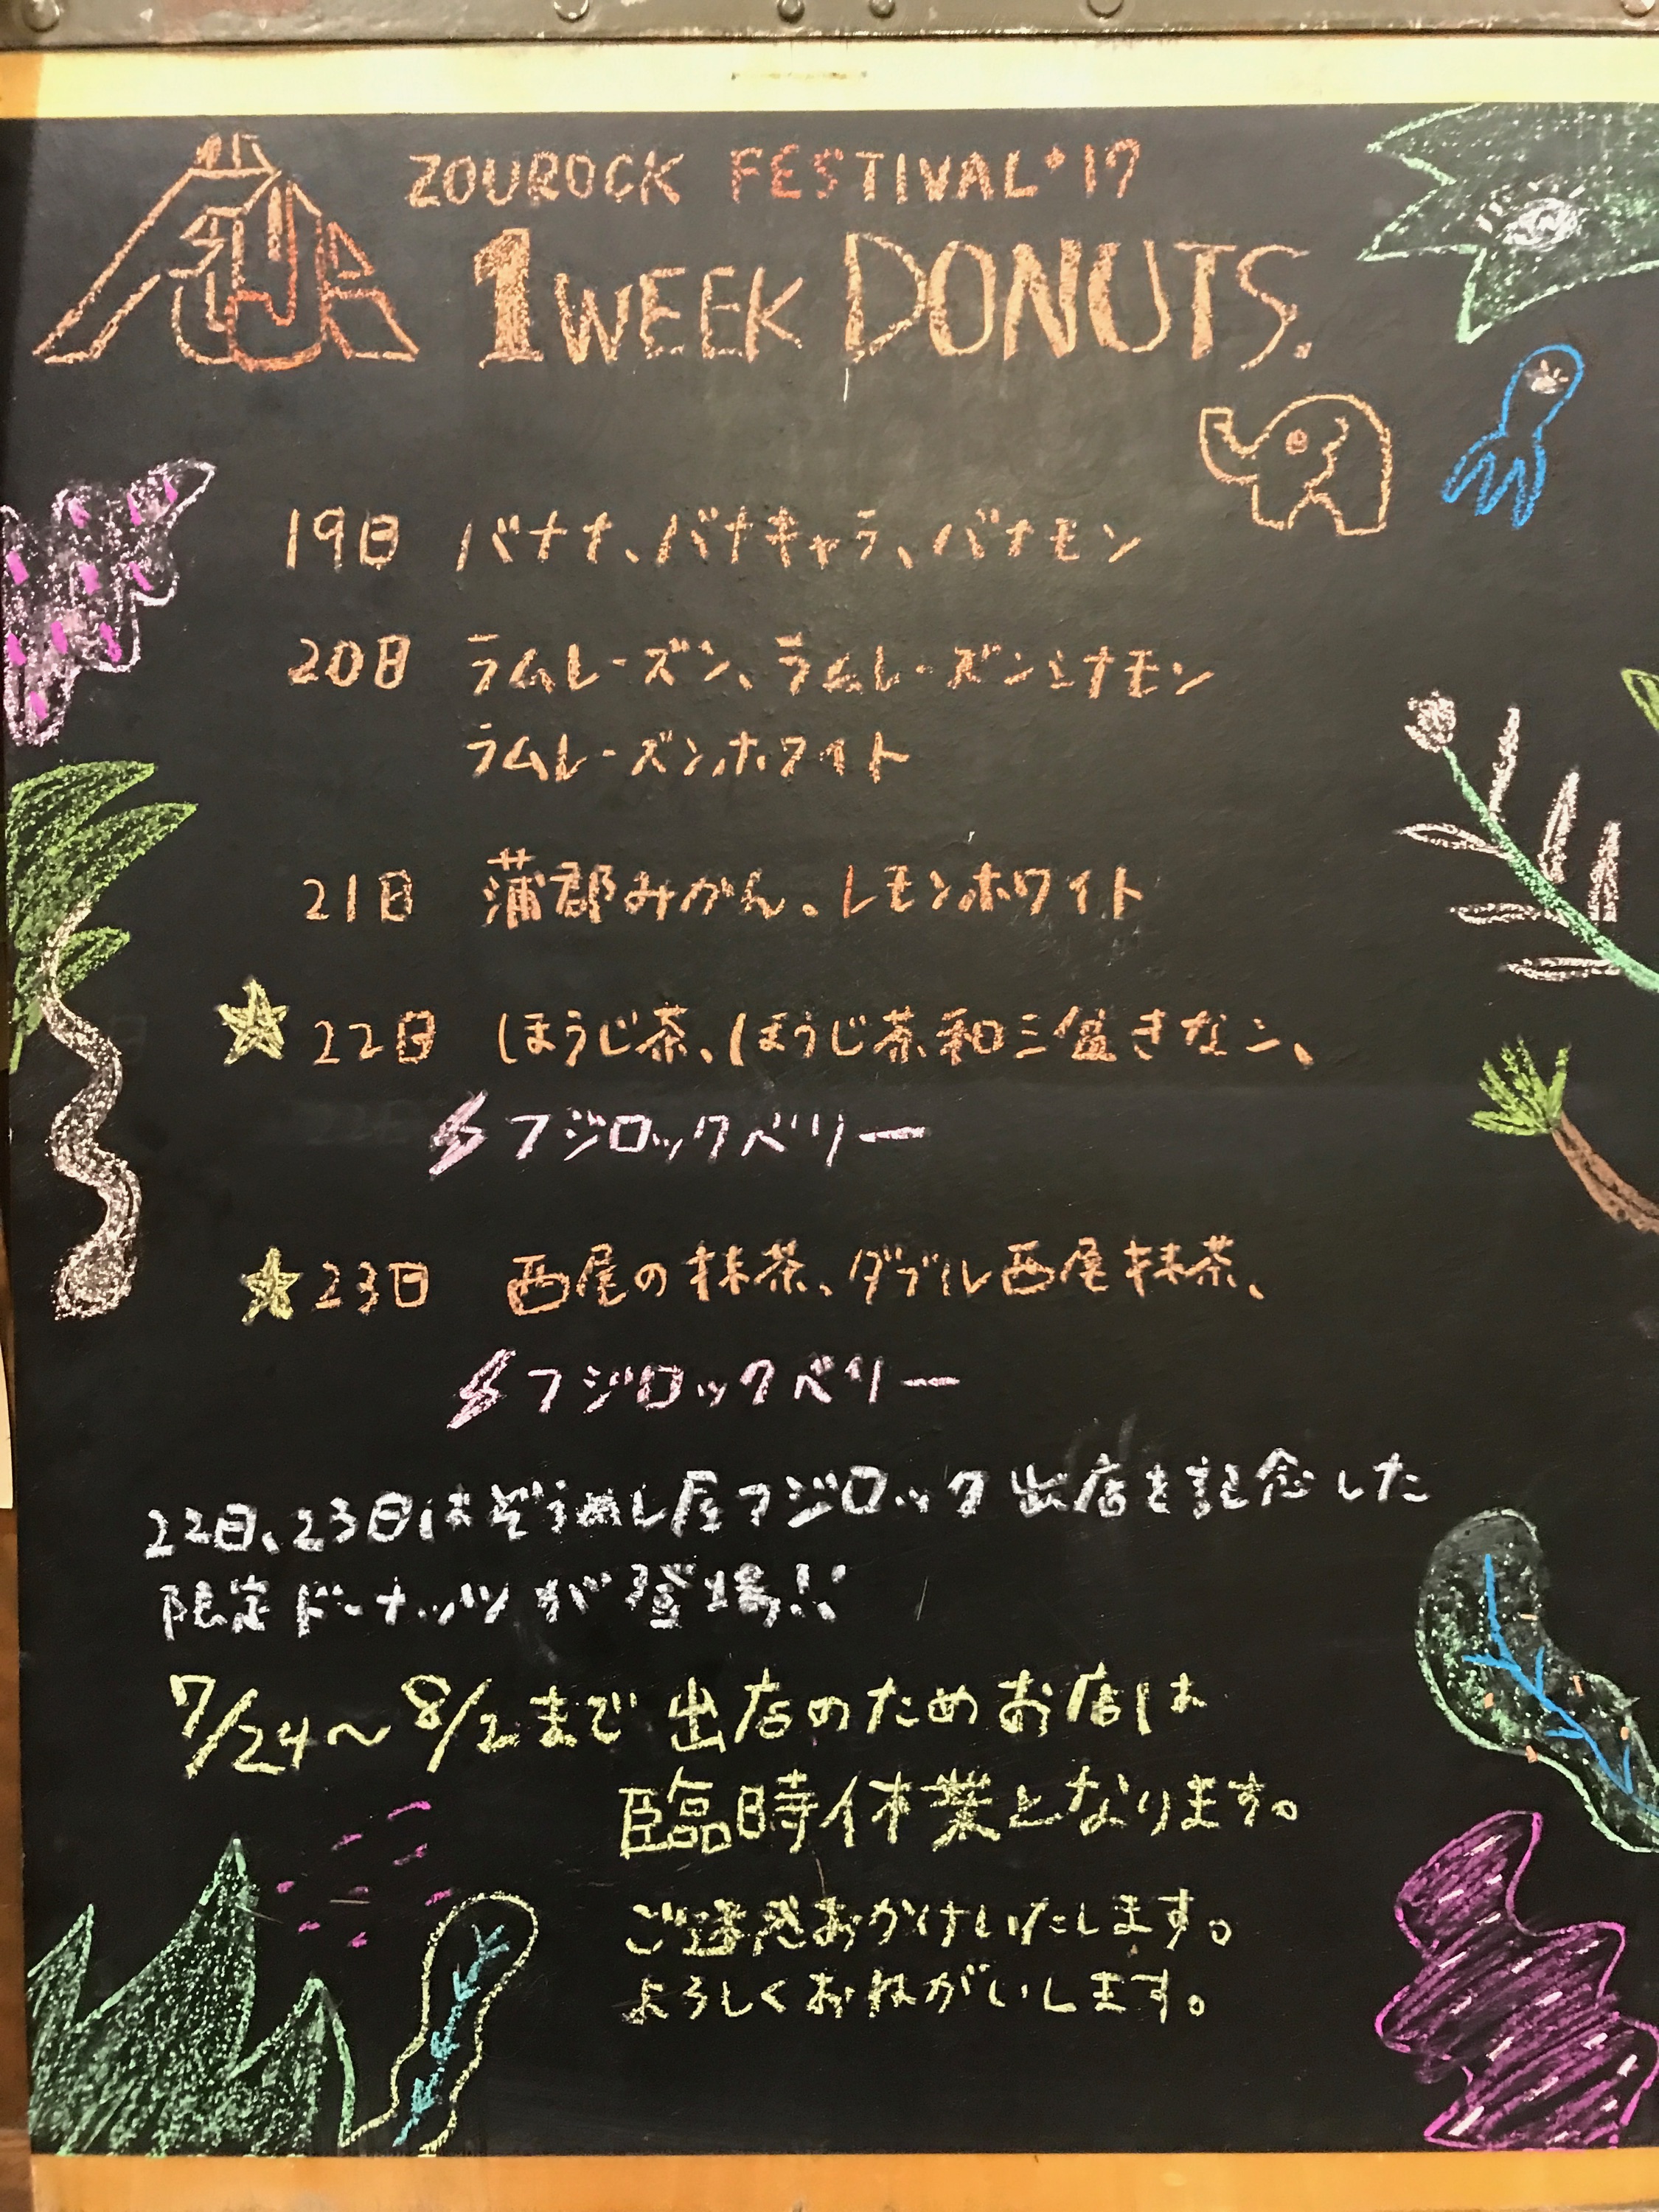 ZOUROCK FESTIVAL '17
1 WEEK DONUTS.
19日 バナナ、バナキャラ、バナモン
20日 ラムレーズン、ラムレーズンシナモン
ラムレーズンホワイト
21日 蒲郡みかん。レモンホワイト
22日 ほうじ茶、ほうじ茶和三盆きなこ、
フジロックベリー
23日 西尾の抹茶、ダブル西尾抹茶、
フジロックベリー
22日、23日はぞうめし屋フジロック出店を記念した
限定ドーナッツが登場!!
7/24〜8/2まで出店のためお店は
臨時休業となります。
ご迷惑おかけいたします。
よろしくおねがいします。